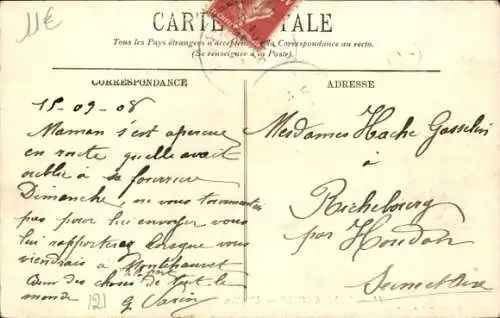 11€
CARTE POSTALE
Tous les Pays étrangers n'acceptent la Correspondance au recto.
(Se renseigner à la Poste).
CORRESPONDANCE
15-09-08
Maman s'est aperçue
en route qu'elle avait
oublié à sa fourrure
Dimanche, ne vous tourmentez
pas pour lui envoyer vous
lui rapporterez lorsque vous
viendrais à Montchauvet
Bien des choses de tout le
monde
G.
121
ADRESSE
Mesdames Hache Gosselin
à
Richebourg
par Houdan
Seine et Oise